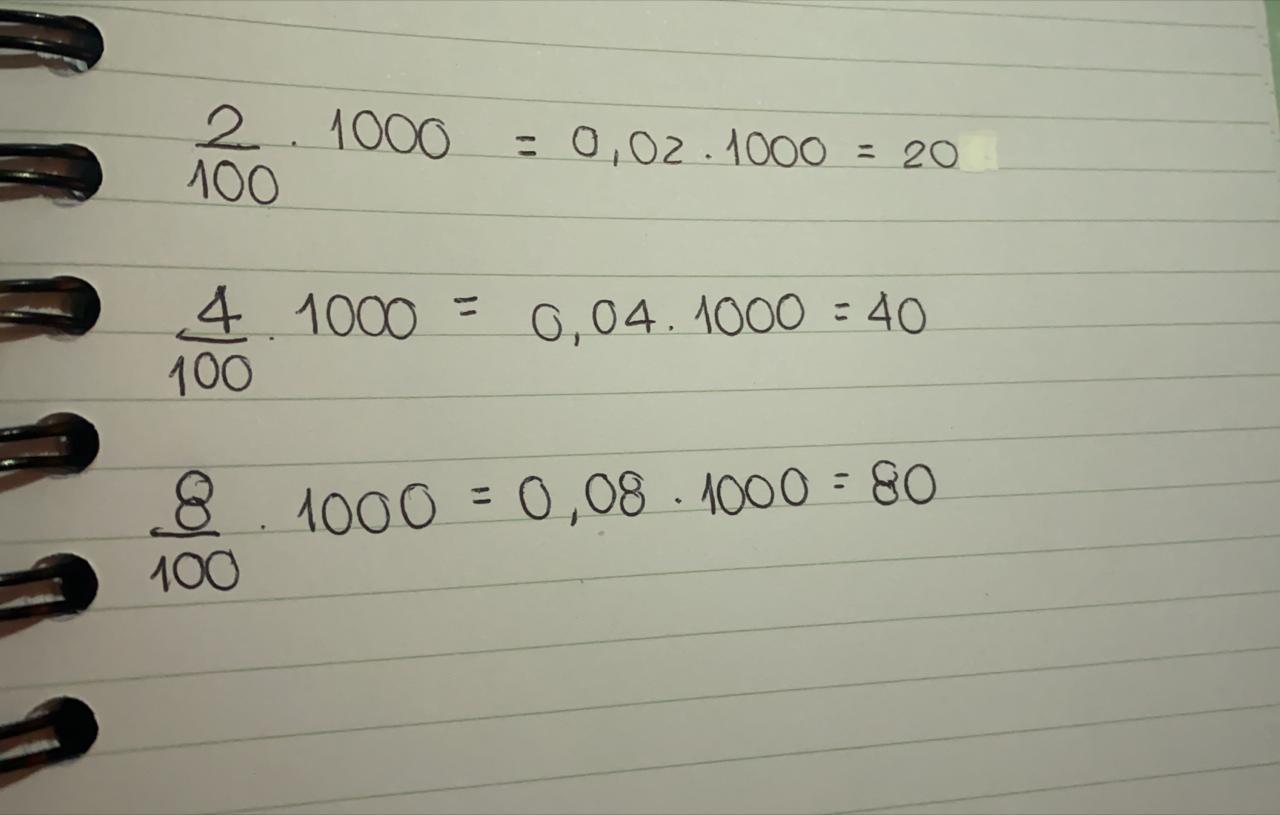 2/100 . 1000 = 0,02 . 1000 = 20
4/100 . 1000 = 0,04 . 1000 = 40
8/100 . 1000 = 0,08 . 1000 = 80